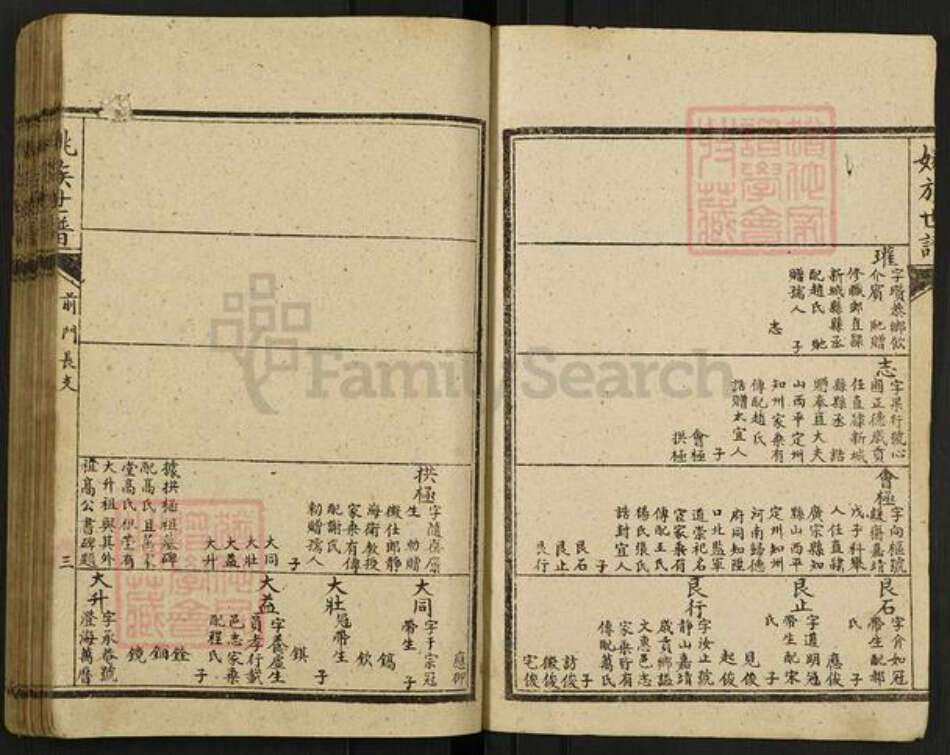 姚族世譜
璀
字瓚恭鄉飲
介賓 馳贈
修職郎直隸
新城縣縣丞
配趙氏 馳
贈孺人 子
志
志
字果行號心
圃正德歲貢
任直隸新城
縣縣丞 誥
贈奉直大夫
山西平定州
知州家乘有
傳配趙氏
誥贈太宜人
子
會極
拱極
會極
字向樞號
頤齋嘉靖
戊子科舉
人任直隸
廣宗縣知
縣山西平
定州知州
河南歸德
府同知陞
口北監軍
道崇祀名
宦家乘有
傳配王氏
楊氏張氏
誥封宜人
子
艮石
艮止
艮行
艮石
字介如冠
帶生配郝
氏
應俊
艮止
字道明冠
帶生配宋
氏 子
見俊
起俊
艮行
字汝止號
靜山嘉靖
歲貢鄉謚
文惠邑志
家乘皆有
傳配萬氏
子
訪俊
徽俊
宅俊
拱極
字隨庵廩
生 勅贈
徵仕郎靜
海衛教授
家乘有傳
配謝氏
勅贈孺人
子
大同
大壯
大益
大升
據拱極祖墓碑
配高氏且萬家
堂高氏祖塋有
大升祖與其外
祖高公書碑題
應御
大同
字于宗冠
帶生 子
鎬
欽
大壯
冠帶生
子
錤
大益
字養廬生
員孝行載
邑志家乘
配程氏
子
銓
鈿
鏡
大升
字承菴號
澄海萬曆
姚族世譜
前門長支
三
FamilySearch